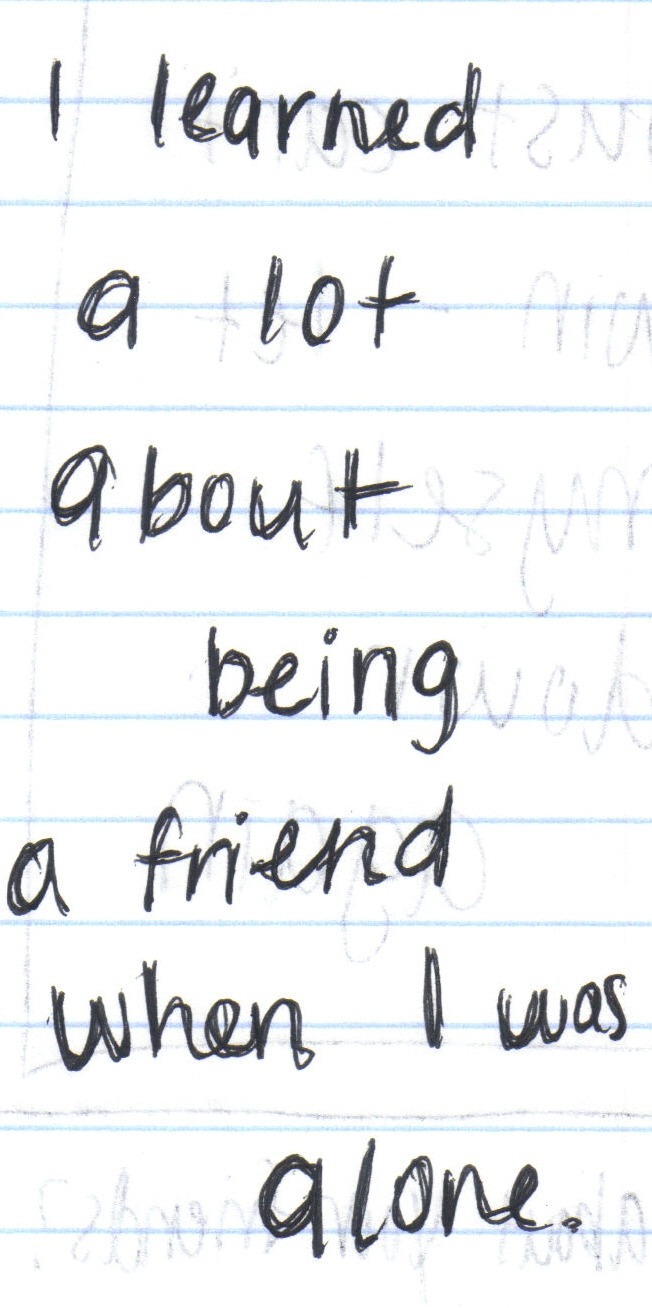 I learned
a lot
about
being
a friend
when I was
alone.